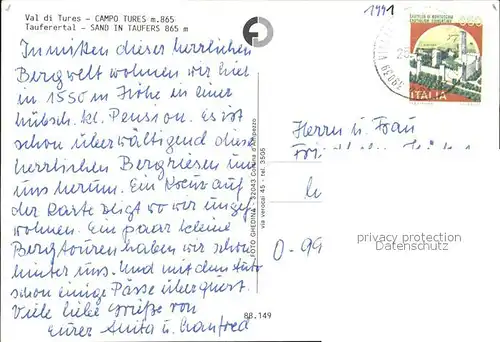 Val di Tures - CAMPO TURES m.865
Taufererental - SAND IN TAUFERS 865 m
In mitten dieser herrlichen
Bergwelt wohnen wir hier
in 1550 m Höhe in einer
hübsch. kl. Pension. Es ist
schon überwältigend diese
herrlichen Bergriesen um
uns herum. Ein Kreuz auf
der Karte zeigt wo wir ungef.
wohnen. Ein paar kleine
Bergtouren haben wir schon
hinter uns. Und mit dem Auto
schon einige Pässe überquert.
Viele liebe Grüße von
Eurer Anita u. Manfred
FOTO GHEDINA - 32043 Cortina d'Ampezzo
via verocai 45 - tel. 3506
88.149
1991
650
ITALIA
39039
Herrn u. Frau
0-99
privacy protection
Datenschutz